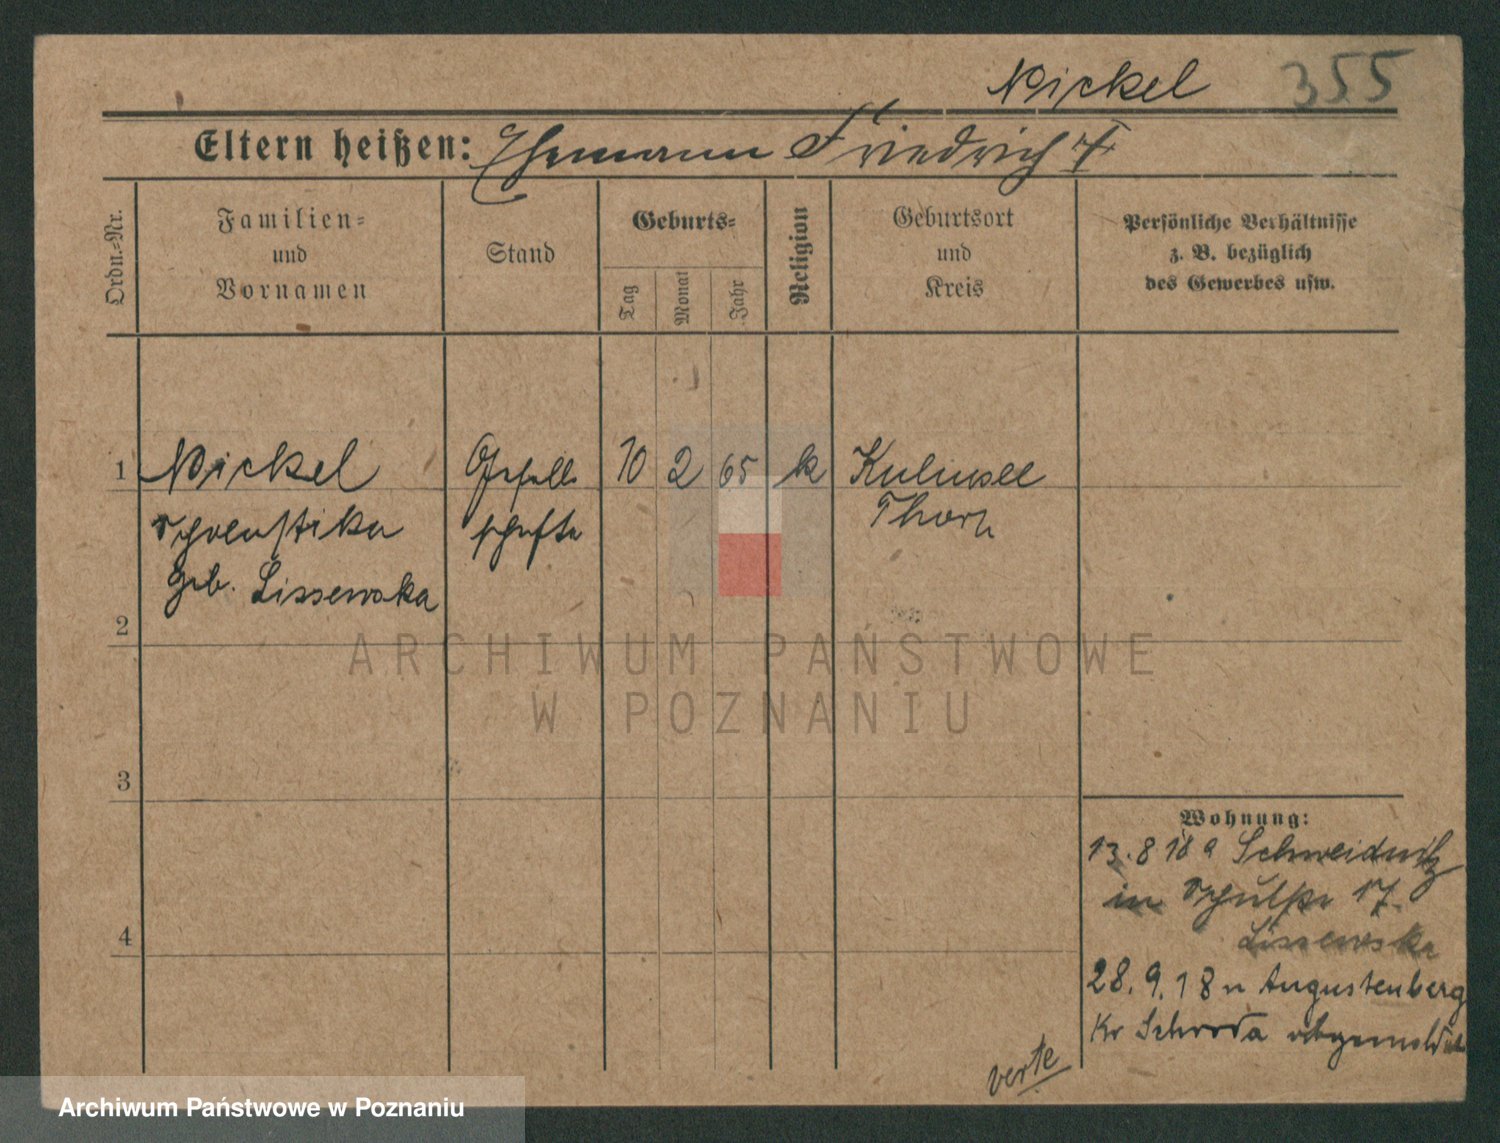 Nickel 355
Eltern heißen: Ehemann Friedrich †
Ordn.=Nr.
Familien=
und
Vornamen
Stand
Geburts=
Tag
Monat
Jahr
Religion
Geburtsort
und
Kreis
Persönliche Verhältnisse
z. B. bezüglich
des Gewerbes usw.
1 Nickel Gesell 10 2 65 k Kulinsee
Scholastika schafte Thorn
geb. Lissewska
2
3
4
Wohnung:
13.8 18 a Schweidnitz
in Schulstr 17.
Lissewska
28.9.18 n Augustenberg
Kr Schroda abgemeldet
verte
ARCHIWUM PAŃSTWOWE
W POZNANIU
Archiwum Państwowe w Poznaniu